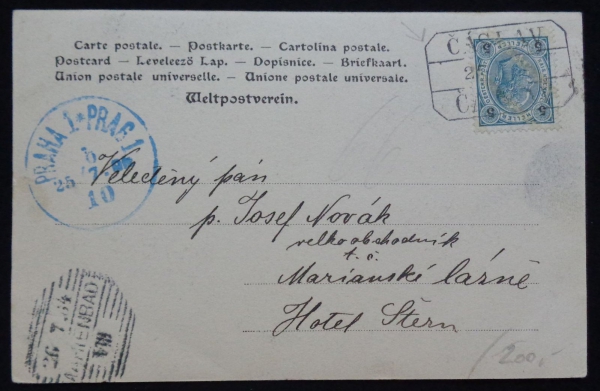 Carte postale. — Postkarte. — Cartolina postale.
Postcard — Levelező Lap. — Dopisnice. — Briefkaart.
Union postale universelle. — Unione postale universale.
Weltpostverein.
ČÁSLAV
5 5
HELLER
5 5
PRAHA 1 * PRAG 1
25
10
Veleděný pán
p. Josef Novák
velkoobchodník
t. č.
Marianské lázně
Hotel Štern
26 7 04
MARIENBAD
200,-